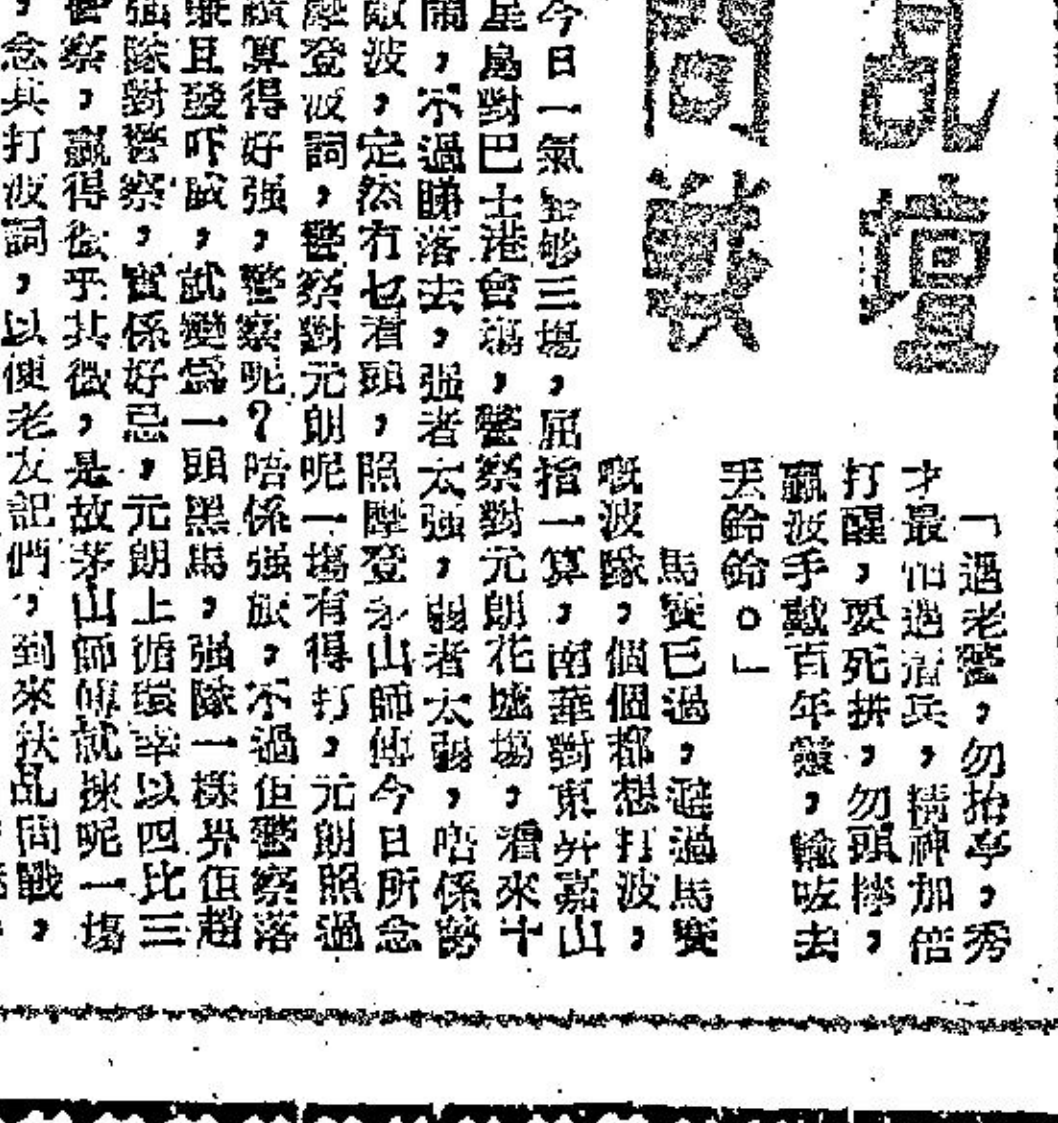 乩壇
問戰
「遇老警，勿抬亭，秀
才最怕遇着兵，精神加倍
打醒，要死拼，勿頭擰，
贏波手戴百年靈，輸咗去
丟鈴鈴。」
馬賽已過，避過馬賽
嘅波隊，個個都想打波，
今日一氣 够三場，屈指一算，南華對東 嘉山
星島對巴士港會塲，警察對元朗花墟塲，着來十
鬧，不過睇落去，强者太强，弱者太弱，唔係勢
敵波，定然冇乜着頭，照摩登 山師傅今日所念
摩登波詞，警察對元朗呢一塲有得打，元朗照過
算得好强，警察呢？唔係强旅，不過佢警察落
且發吓 ，就變爲一頭黑馬，强隊一樣畀佢趙
强隊對警察，實係好忌，元朗上循環幸以四比三
警察，贏得微乎其微，是故茅山師傅就揀呢一塲
，念其打波詞，以便老友記們，到來扶乩問戰，